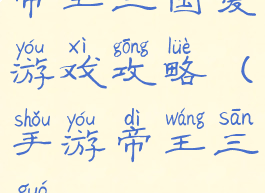 帝王三国
yóu xì gōng lüè
游戏攻略（
shǒu yóu dì wáng sān
手游帝王三
guó